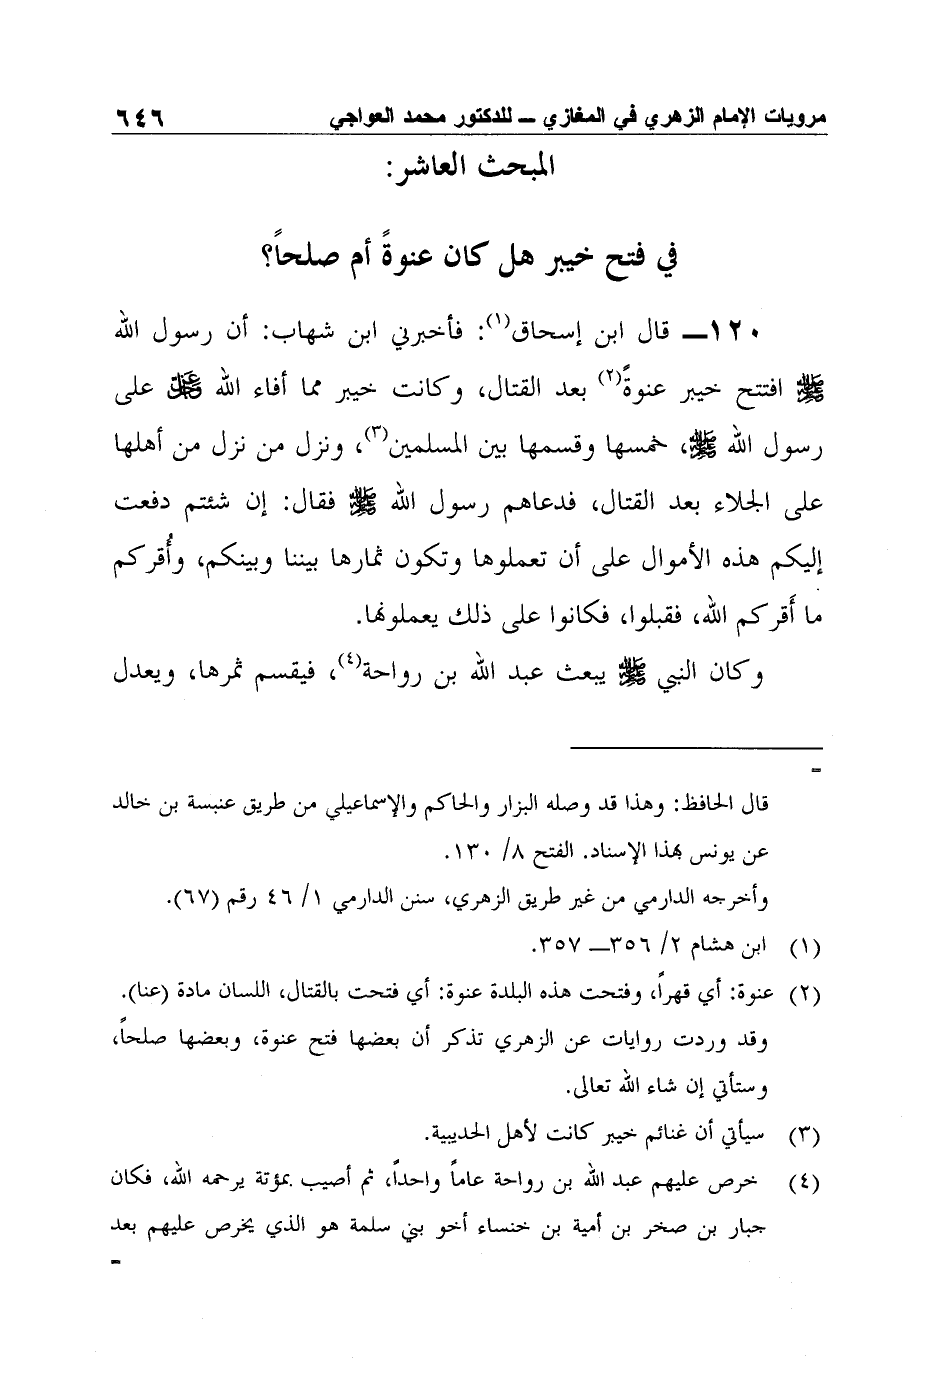 مرويات الإمام الزهري في المغازي ــ للدكتور محمد العواجي ٦٤٦
المبحث العاشر:
في فتح خيبر هل كان عنوةً أم صلحاً؟
١٢٠ــ قال ابن إسحاق(١): فأخبرني ابن شهاب: أن رسول الله
ﷺ افتتح خيبر عنوةً(٢) بعد القتال، وكانت خيبر مما أفاء الله عز وجل على
رسول الله ﷺ، خمسها وقسمها بين المسلمين(٣)، ونزل من نزل من أهلها
على الجلاء بعد القتال، فدعاهم رسول الله ﷺ فقال: إن شئتم دفعت
إليكم هذه الأموال على أن تعملوها وتكون ثمارها بيننا وبينكم، وأُقركم
ما أَقركم الله، فقبلوا، فكانوا على ذلك يعملونها.
وكان النبي ﷺ يبعث عبد الله بن رواحة(٤)، فيقسم ثمرها، ويعدل
=
قال الحافظ: وهذا قد وصله البزار والحاكم والإسماعيلي من طريق عنبسة بن خالد
عن يونس بهذا الإسناد. الفتح ٨/ ١٣٠.
وأخرجه الدارمي من غير طريق الزهري، سنن الدارمي ١/ ٤٦ رقم (٦٧).
(١) ابن هشام ٢/ ٣٥٦ــ ٣٥٧.
(٢) عنوة: أي قهراً، وفتحت هذه البلدة عنوة: أي فتحت بالقتال، اللسان مادة (عنا).
وقد وردت روايات عن الزهري تذكر أن بعضها فتح عنوة، وبعضها صلحاً،
وستأتي إن شاء الله تعالى.
(٣) سيأتي أن غنائم خيبر كانت لأهل الحديبية.
(٤) خرص عليهم عبد الله بن رواحة عاماً واحداً، ثم أصيب بمؤتة يرحمه الله، فكان
جبار بن صخر بن أمية بن خنساء أخو بني سلمة هو الذي يخرص عليهم بعد
=